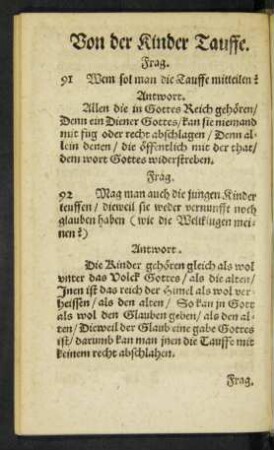 Von der Kinder Tauffe.
Frag.
91 Wem sol man die Tauffe mitteilen?
Antwort.
Allen die in Gottes Reich gehören/
Denn ein Diener Gottes/ kan sie niemand
mit fug oder recht abschlagen/ Denn al-
lein denen/ die öffentlich mit der that/
dem wort Gottes widerstreben.
Frag.
92 Mag man auch die jungen Kinder
teuffen/ dieweil sie weder vernunfft noch
glauben haben (wie die Weltklugen mei-
nen?)
Antwort.
Die Kinder gehören gleich als wol
vnter das Volck Gottes/ als die alten/
Jnen ist das reich der Himel als wol ver-
heissen/ als den alten/ So kan jn Gott
als wol den Glauben geben/ als den al-
ten/ Dieweil der Glaub eine gabe Gottes
ist/ darumb kan man jnen die Tauffe mit
keinem recht abschlahen.
Frag.